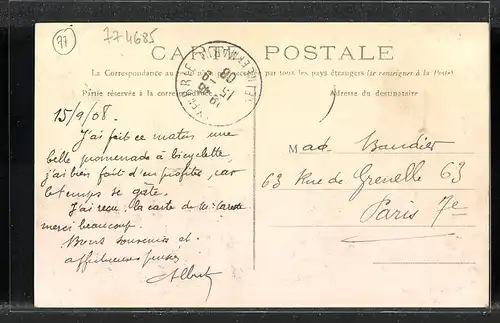 77
774685
CARTE POSTALE
La Correspondance au par tous les pays étrangers (se renseigner à la Poste)
Partie réservée à la correspondance
Adresse du destinataire
15/9/08.
J'ai fait ce matin une
belle promenade à bicyclette,
j'ai bien fait d'en profiter car
le temps se gâte.
J'ai reçu la carte de
merci beaucoup.
Bons souvenirs et
affectueuses pensées
Albert
Mad. Baudier
63 Rue de Grenelle 63
Paris 7e
15 - 9
08